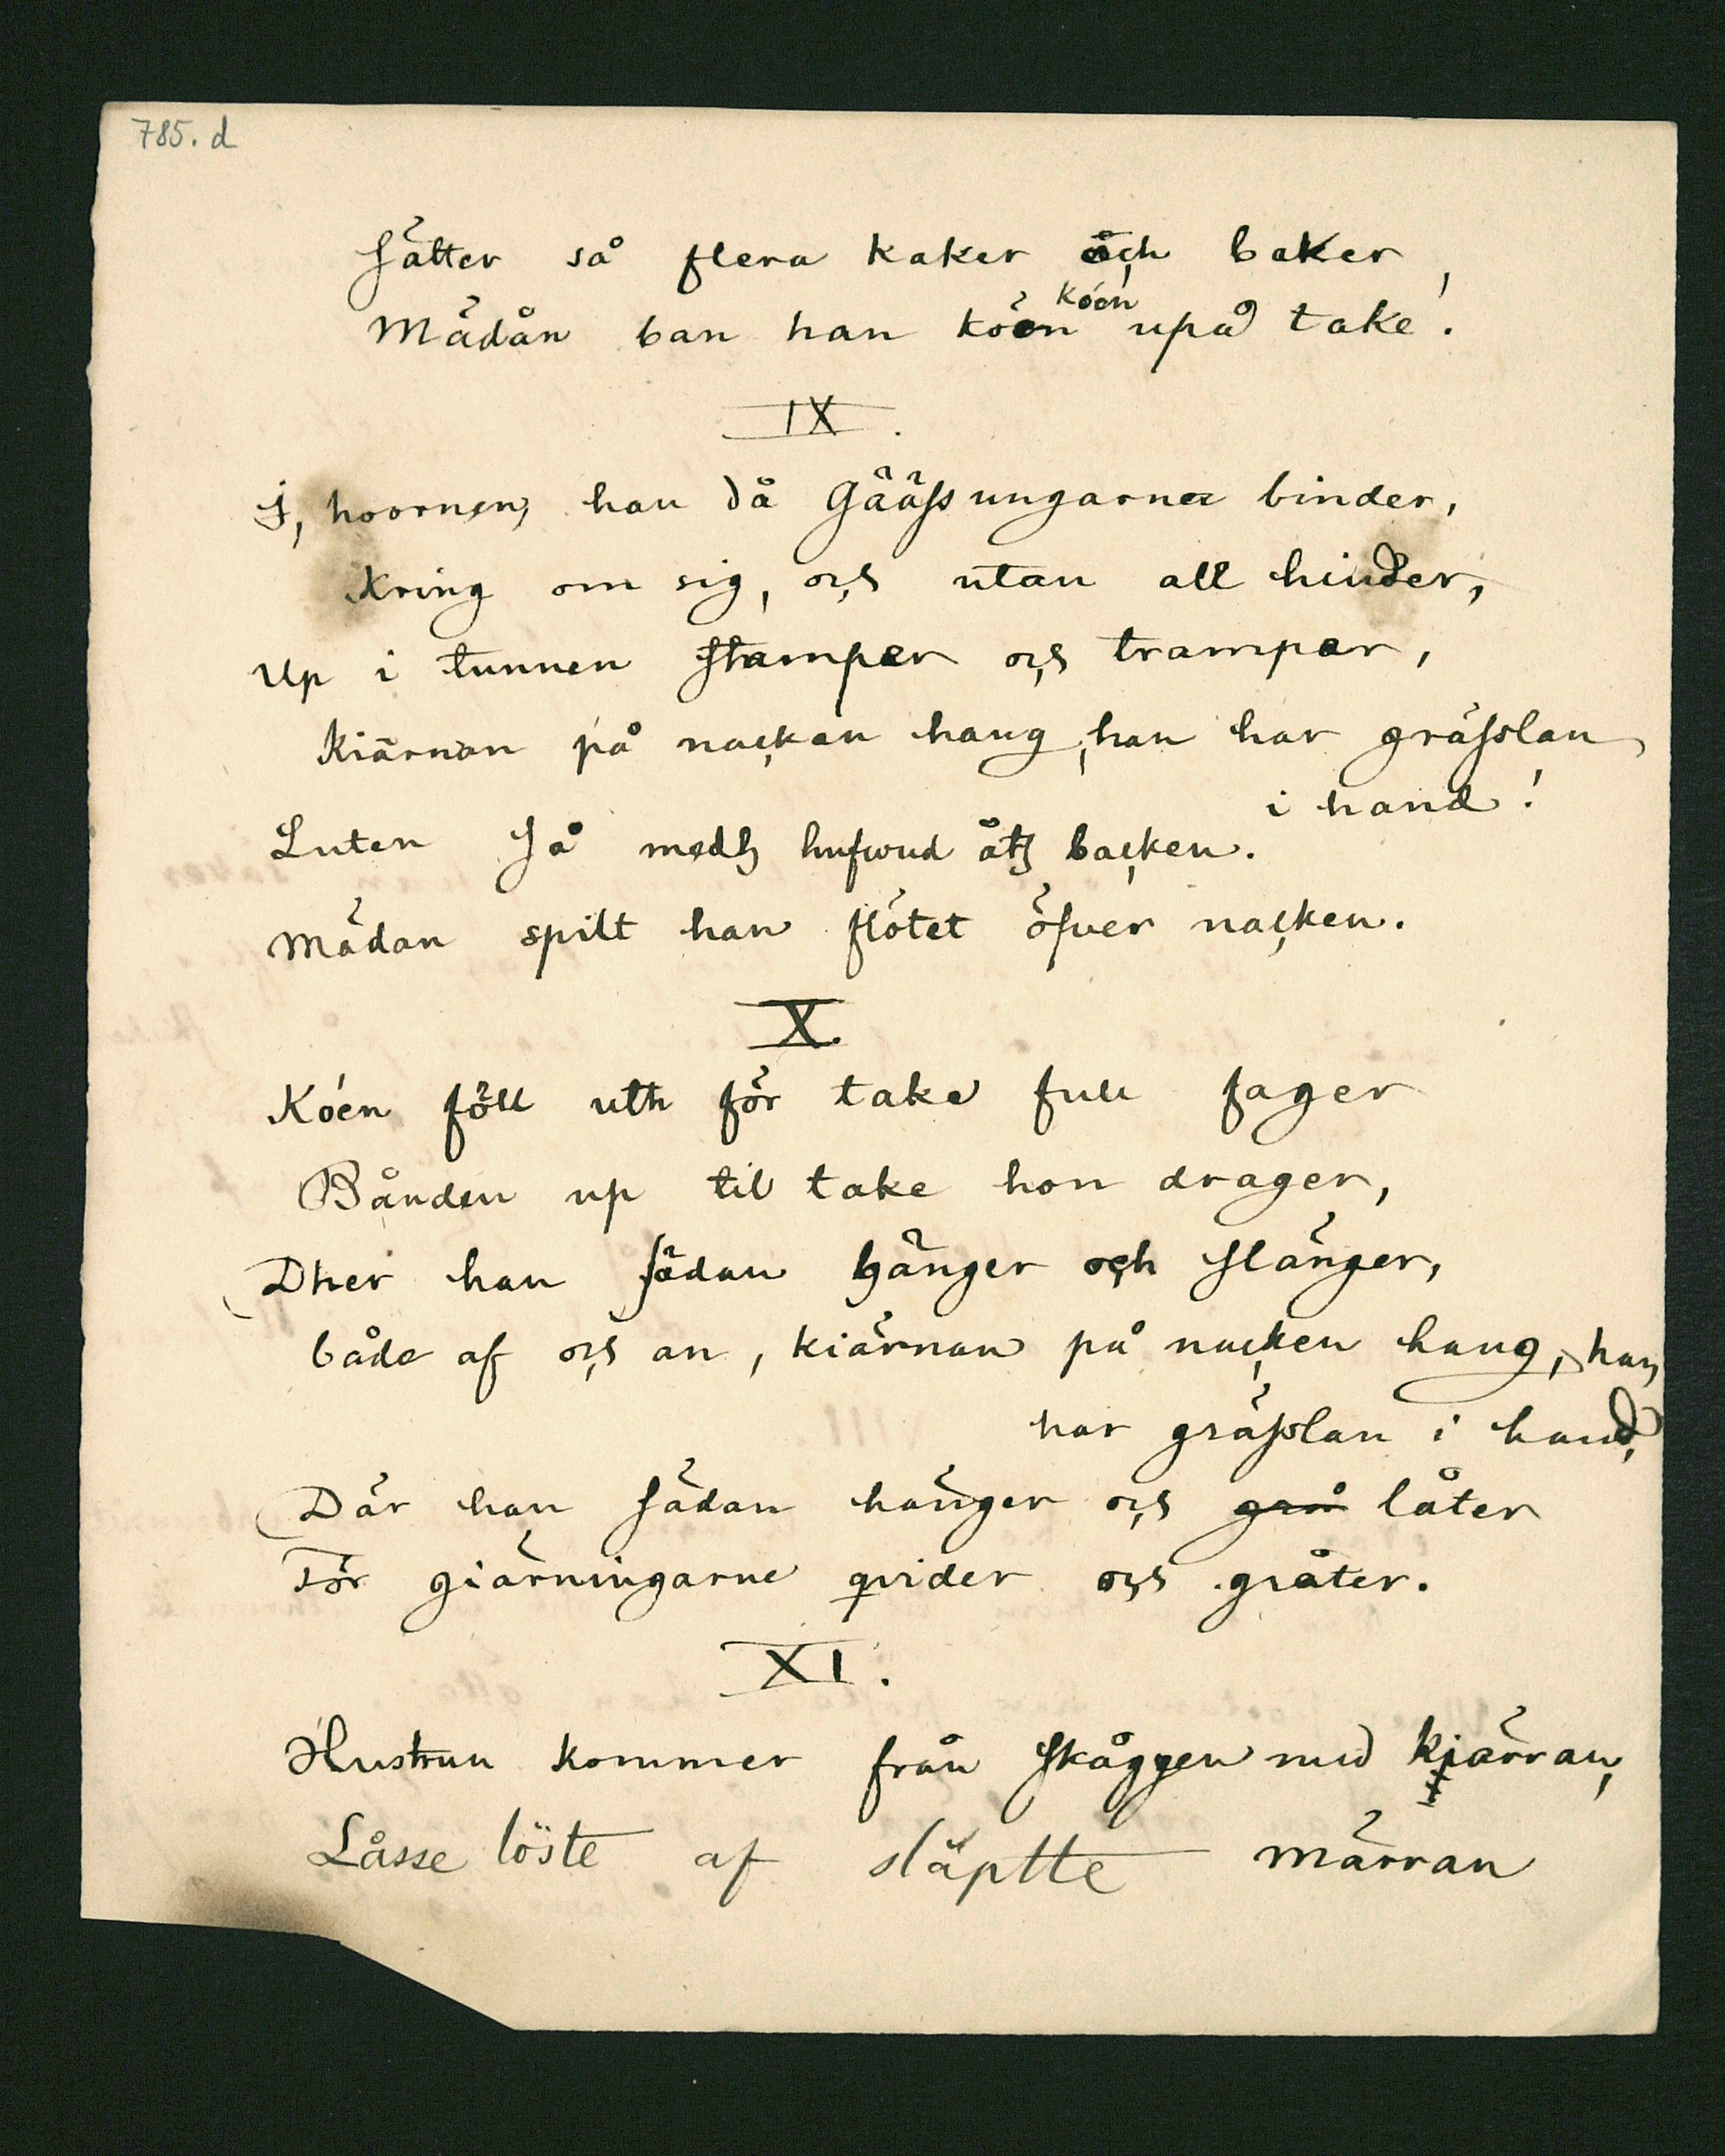 785. d
Sätter så flera kaker och baker,
Mädån ban han köen köen upå take!
IX.
I, hoornen, han då Gääss ungarna binder,
Kring om sig, och utan all hinder,
Up i tunnen stamper och tramper,
Kiärnan på nacken hang, han har grässlan
i hand!
Luten så medh hufwud åth backen.
Mädan spilt han flötet öfver nacken.
X.
Köen föll uth för take full fager
Bånden up til take hon drager,
Dher han sädan hänger och slänger,
både af och an, kiärnan på nacken hang, han
har grässlan i hand,
Där han sädan hänger och grå låter
För giärningarne qvider och gråter.
XI.
Hustrun kommer från skåggen med kjärran,
Låsse löste af släptte märran